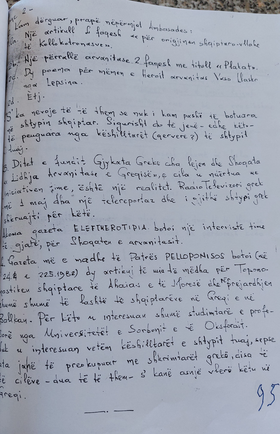 Kam dërguar, prapë nëpërmjet Ambasades:
Një artikull 5 faqesh "për origjinën shqiptaro-vllahe
të Kollokotronesve".
Një përrallë arvanitase 2 faqesh me titull "Plakata"
Dy poema për nënën e heroit arvanitas Vaso
nga Lepsina.
Etj.
S'ka nevojë të të them se nuk i kam pushë të botuara
në shtypin shqiptar. Sigurisht do të jenë edhe këto
të penguara nga këshilltarët e shtypit
tuaj.
Ditët e fundit Gjykata Greke dha lejen dhe Shoqata
Lidhja Arvanitase e Greqisë, e cila u nxurtua me
iniciativën time, është një realitet. Radio Televizori grek
1 maj dha një telereportazh dhe i gjithë shtypi grek
shkruajti për këtë.
gazeta ELEFTHEROTIPIA botoi një intervistë time
të gjatë, për Shoqatën e arvanitasit.
Gazeta më e madhe të Patrës PELLOPONISOS botoi (në
24.4 e 22.5.1982) dy artikuj të mi të mëdha për Topono-
mastikën shqiptare të Ahaias e të Moresë dhe prejardhjen
shumë shumë të lashtë të shqiptarëve në Greqi e në
Ballkan. Për këto u interesuan shumë studimtarë e profe-
sorë nga Universitetet e Sorbonit e të Oksfordit.
Nuk u interesuan vetëm këshilltarët e shtypit tuaj, sepse
ata janë të preokupuar me shkrimtarët grekë, cisa të
të cilëve - dua të të them - s'kanë asnjë vlerë këtu në
Greqi.
95